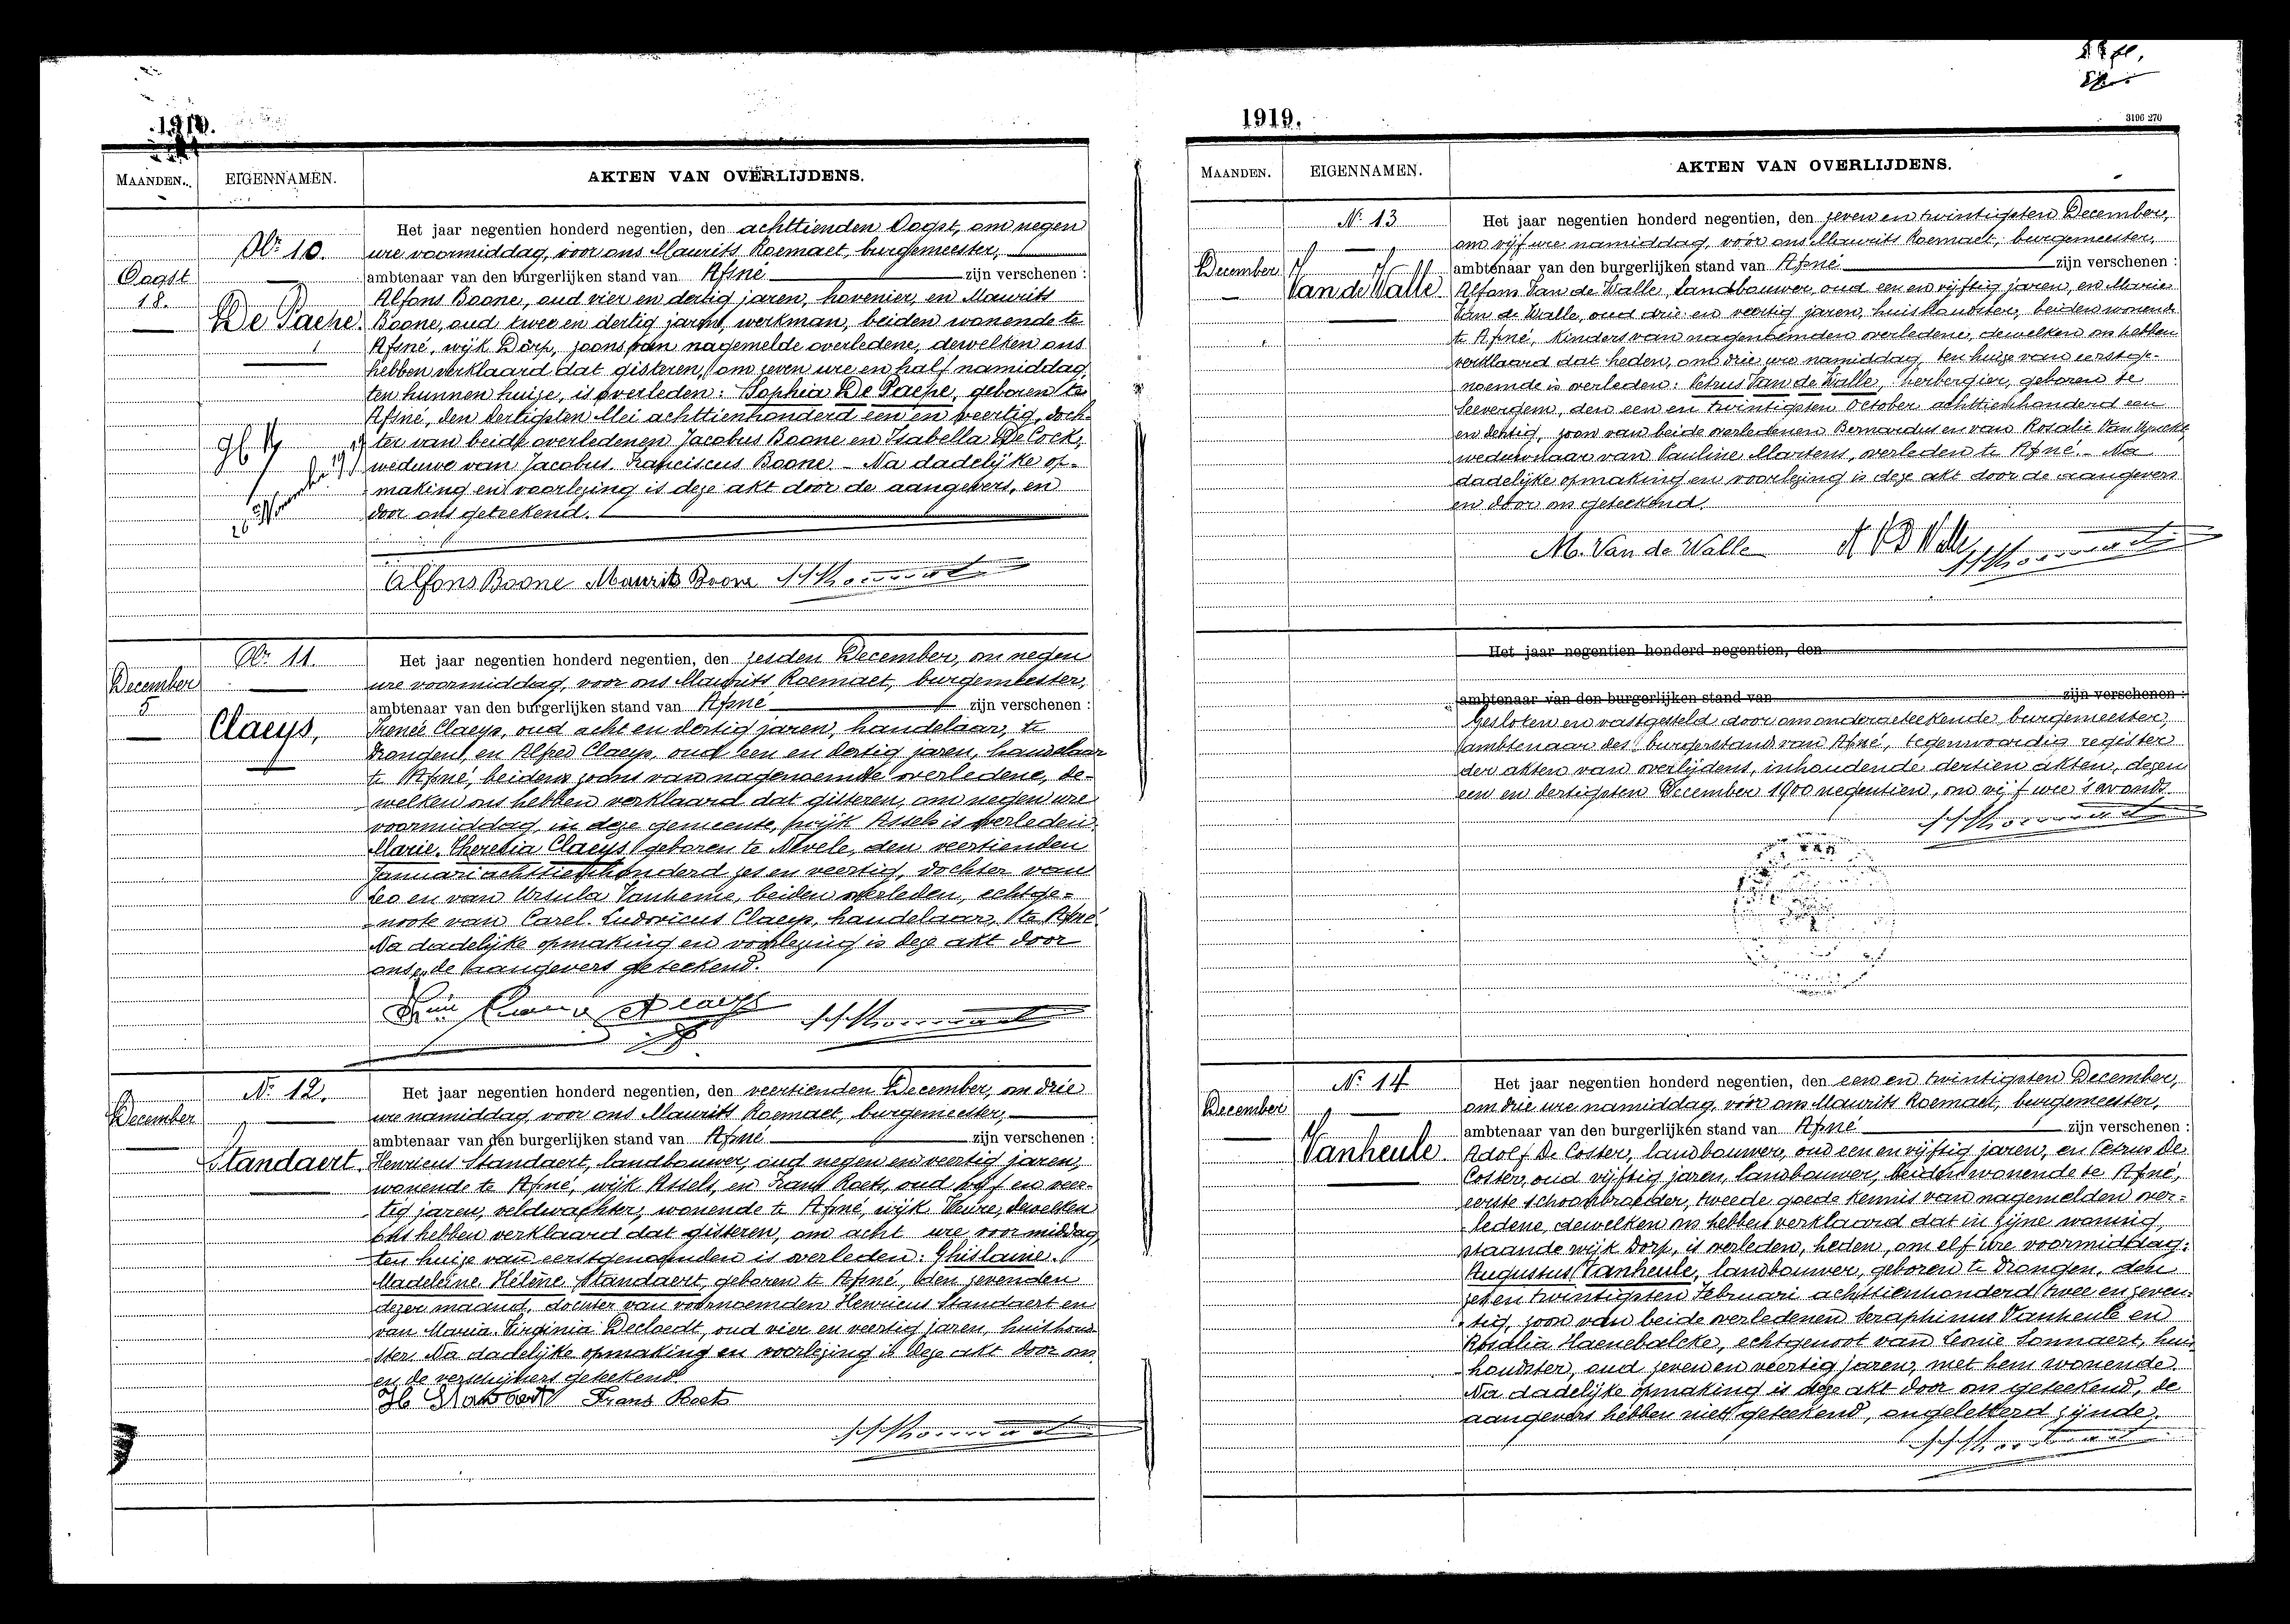 1919.
MAANDEN.
EIGENNAMEN.
AKTEN VAN OVERLIJDENS.
Nr 10.
Oogst
18.
De Paepe.
Het jaar negentien honderd negentien, den achttienden Oogst, om negen
ure voormiddag, voor ons Maurits Roemaet, burgemeester,
ambtenaar van den burgerlijken stand van Afsné zijn verschenen :
Alfons Boone, oud vier en dertig jaren, hovenier, en Maurits
Boone, oud twee en dertig jaren, werkman, beiden wonende te
Afsné, wijk Dorp, zoons van nagemelde overledene, dewelken ons
hebben verklaard dat gisteren, om zeven ure en half namiddag,
ten hunnen huize, is overleden : Sophia De Paepe, geboren te
Afsné, den dertigsten Mei achttienhonderd een en veertig, doch-
ter van beide overledenen Jacobus Boone en Isabella De Cock,
weduwe van Jacobus Franciscus Boone. - Na dadelijke op-
making en voorlezing is deze akt door de aangevers, en
door ons geteekend.
Alfons Boone Maurits Boone
Nr 11.
December
5
Claeys,
Het jaar negentien honderd negentien, den zesden December, om negen
ure voormiddag, voor ons Maurits Roemaet, burgemeester,
ambtenaar van den burgerlijken stand van Afsné zijn verschenen :
Irenée Claeys, oud acht en dertig jaren, handelaar, te
Drongen, en Alfred Claeys, oud een en dertig jaren, handelaar
te Afsné, beiden zoons van nagenoemde overledene, de-
welken ons hebben verklaard dat gisteren, om negen ure
voormiddag, in deze gemeente, wijk Assels is overleden
Marie Theresia Claeys geboren te Nevele, den veertienden
Januari achttienhonderd zes en veertig, dochter van
Leo en van Ursula, beiden overleden, echtge-
noote van Carel Ludovicus Claeys, handelaar, te Afsné.
Na dadelijke opmaking en voorlezing is deze akt door
ons en de aangevers geteekend.
Nr 12.
December
Standaert.
Het jaar negentien honderd negentien, den veertienden December, om drie
ure namiddag, voor ons Maurits Roemaet, burgemeester,
ambtenaar van den burgerlijken stand van Afsné zijn verschenen :
Henricus Standaert, landbouwer, oud negen en veertig jaren,
wonende te Afsné, wijk Assels, en Frans Roets, oud vijf en veer-
tig jaren, veldwachter, wonende te Afsné, wijk Heure, dewelken
ons hebben verklaard dat gisteren, om acht ure voormiddag,
ten huize van eerstgenoemden is overleden : Ghislaine
Madeleine Hélène Standaert, geboren te Afsné, den zevenden
dezer maand, dochter van voornoemden Henricus Standaert en
van Maria Virginia Decloedt, oud vier en veertig jaren, huishoud-
ster. Na dadelijke opmaking en voorlezing is deze akt door ons
en de verschijners geteekend.
H Standaert Frans Roets
1919.
3196 270
MAANDEN.
EIGENNAMEN.
AKTEN VAN OVERLIJDENS.
Nr 13
December
Van de Walle
Het jaar negentien honderd negentien, den zeven en twintigsten December,
om vijf ure namiddag, voor ons Maurits Roemaet, burgemeester,
ambtenaar van den burgerlijken stand van Afsné zijn verschenen :
Alfons Van de Walle, Landbouwer, oud een en vijftig jaren, en Marie
Van de Walle, oud drie en veertig jaren, huishoudster, beiden wonende
te Afsné, kinders van nagenoemden overledene, dewelken ons hebben
verklaard dat heden, om drie ure namiddag ten huize van eerstge-
noemde is overleden : Petrus Van de Walle, herbergier, geboren te
Leevergem, den een en twintigsten October achttienhonderd een
en dertig, zoon van beide overledenen Bernardus en van Rosalie
weduwnaar van Pauline Martens, overleden te Afsné. - Na
dadelijke opmaking en voorlezing is deze akt door de aangevers
en door ons geteekend.
M. Van de Walle A V D Walle
Het jaar negentien honderd negentien, den
ambtenaar van den burgerlijken stand van zijn verschenen :
Gesloten en vastgesteld door ons ondergeteekende burgemeester,
ambtenaar des burgerstands van Afsné, tegenwoordig register
der akten van overlijdens, inhoudende dertien akten, dezen
een en dertigsten December 1900 negentien, om vijf ure 's avonds.
Nr 14
December
Vanheule
Het jaar negentien honderd negentien, den een en twintigsten December,
om drie ure namiddag, voor ons Maurits Roemaet, burgemeester,
ambtenaar van den burgerlijken stand van Afsné zijn verschenen :
Adolf De Coster, landbouwer, oud een en vijftig jaren, en Petrus De
Coster, oud vijftig jaren, landbouwer, beiden wonende te Afsné,
eerste schoonbroeder, tweede goede kennis van nagemelden over-
ledene, dewelken ons hebben verklaard dat in zijne woning,
staande wijk Dorp, is overleden, heden, om elf ure voormiddag :
Augustus Vanheule, landbouwer, geboren te Drongen, den
zes en twintigsten Februari achttienhonderd twee en zeven-
tig, zoon van beide overledenen Seraphinus Vanheule en
Rosalia Haenebalcke, echtgenoot van Leonie Sonnaert, huis-
houdster, oud zeven en veertig jaren, met hem wonende.
Na dadelijke opmaking is deze akt door ons geteekend, de
aangevers hebben niet geteekend, ongeletterd zijnde.